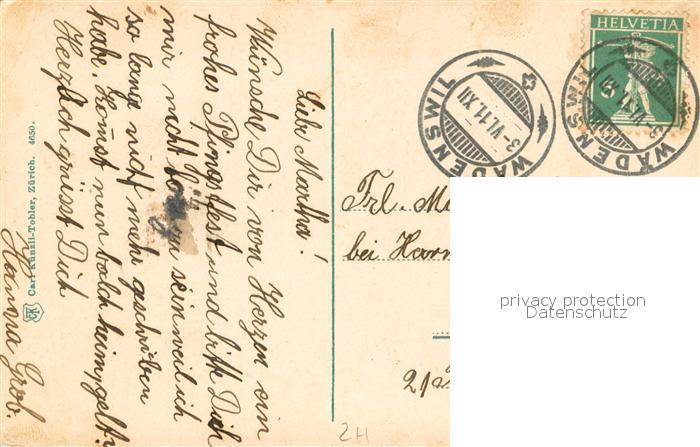 Liebe Martha!
Wünsche Dir von Herzen ein
frohes Pfingstfest und bitte Dich
mir nicht bös zu sein weil ich
so lang nicht mehr geschrieben
habe. Komst nun bald heim, gelt?
Herzlich grüsst Dich
Grob.
Carl Künzli-Tobler, Zürich. 4650.
CKT
HELVETIA
5
WÄDENSWIL
3-VI.11.XII
WÄDENSWIL
Frl. Ma
bei Herrn
privacy protection
Datenschutz
2H